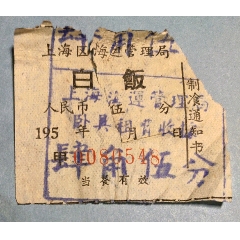 上海区海运管理局
白飯
人民币伍分
195 年 月 日
0088548
当餐有效
制食通知书
上海海运管理局
卧具租育收据
肆角伍分